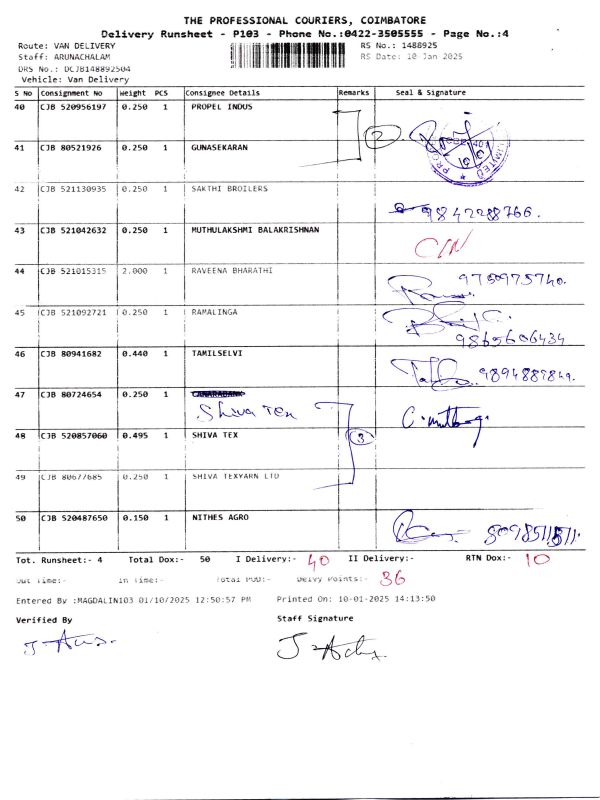 THE PROFESSIONAL COURIERS, COIMBATORE
Delivery Runsheet - P103 - Phone No.:0422-3505555 - Page No.:4
Route: VAN DELIVERY RS No.: 1488925
Staff: ARUNACHALAM RS Date: 10 Jan 2025
DRS No.: DCJB148892504
Vehicle: Van Delivery
S No Consignment No Weight PCS Consignee Details Remarks Seal & Signature
40 CJB 520956197 0.250 1 PROPEL INDUS
2
41 CJB 80521926 0.250 1 GUNASEKARAN
42 CJB 521130935 0.250 1 SAKTHI BROILERS
9842288766.
43 CJB 521042632 0.250 1 MUTHULAKSHMI BALAKRISHNAN
44 CJB 521015315 2.000 1 RAVEENA BHARATHI
9750975740.
45 CJB 521092721 0.250 1 RAMALINGA
9865606434
46 CJB 80941682 0.440 1 TAMILSELVI
47 CJB 80724654 0.250 1 CANARABANK
Shiva Tex
48 CJB 520857060 0.495 1 SHIVA TEX 3
49 CJB 80677685 0.250 1 SHIVA TEXYARN LTD
50 CJB 520487650 0.150 1 NITHES AGRO
Tot. Runsheet:- 4 Total Dox:- 50 I Delivery:- 40 II Delivery:- RTN Dox:- 10
Out Time:- In Time:- Total POD:- Delvy Points:- 36
Entered By :MAGDALIN103 01/10/2025 12:50:57 PM Printed On: 10-01-2025 14:13:50
Verified By Staff Signature